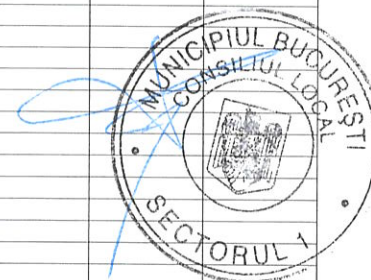 MUNICIPIUL BUCUREȘTI
CONSILIUL LOCAL
SECTORUL 1